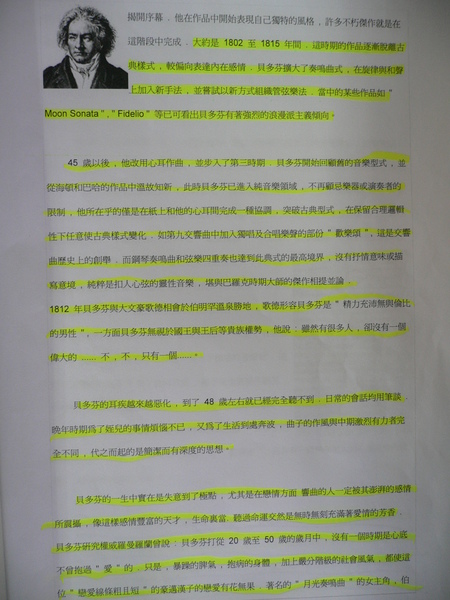 揭開序幕．他在作品中開始表現自己獨特的風格，許多不朽傑作就是在
這階段中完成．大約是 1802 至 1815 年間．這時期的作品逐漸脫離古
典樣式，較偏向表達內在感情．貝多芬擴大了奏鳴曲式，在旋律與和聲
上加入新手法，並嘗試以新方式組織管弦樂法．當中的某些作品如 "
Moon Sonata "，" Fidelio " 等已可看出貝多芬有著強烈的浪漫派主義傾向。
45 歲以後，他改用心耳作曲，並步入了第三時期．貝多芬開始回顧舊的音樂型式，並
從海頓和巴哈的作品中溫故知新，此時貝多芬已進入純音樂領域，不再顧忌樂器或演奏者的
限制，他所在乎的僅是在紙上和他的心耳間完成一種協調，突破古典型式，在保留合理邏輯
性下任意使古典樣式變化．如第九交響曲中加入獨唱及合唱樂聲的部份 " 歡樂頌 "，這是交響
曲歷史上的創舉．而鋼琴奏鳴曲和弦樂四重奏也達到此典式的最高境界，沒有抒情意味或描
寫意境，純粹是扣人心弦的靈性音樂，堪與巴羅克時期大師的傑作相提並論．
1812 年貝多芬與大文豪歌德相會於伯明罕溫泉勝地，歌德形容貝多芬是 " 精力充沛無與倫比
的男性 "，一方面貝多芬無視於國王與王后等貴族權勢，他說：雖然有很多人，卻沒有一個
偉大的 ...... 不，不，只有一個......。
貝多芬的耳疾越來越惡化，到了 48 歲左右就已經完全聽不到．日常的會話均用筆談．
晚年時期為了姪兒的事情煩惱不已，又為了生活到處奔波，曲子的作風與中期激烈有力者完
全不同，代之而起的是簡潔而有深度的思想。
貝多芬的一生中實在是失意到了極點，尤其是在戀情方面 響曲的人一定被其澎湃的感情
所震攝，像這樣感情豐富的天才，生命裏當．聽過命運交然是無時無刻充滿著愛情的芳香．
貝多芬研究權威羅曼羅蘭曾說：貝多芬打從 20 歲至 50 歲的歲月中，沒有一個時期是心底
不曾抱過 " 愛 " 的．只是，暴躁的脾氣，抱病的身體，加上嚴分階級的社會風氣，都使這
位 " 戀愛線條粗且短 " 的豪邁漢子的戀愛有花無果．著名的 " 月光奏鳴曲 " 的女主角，伯